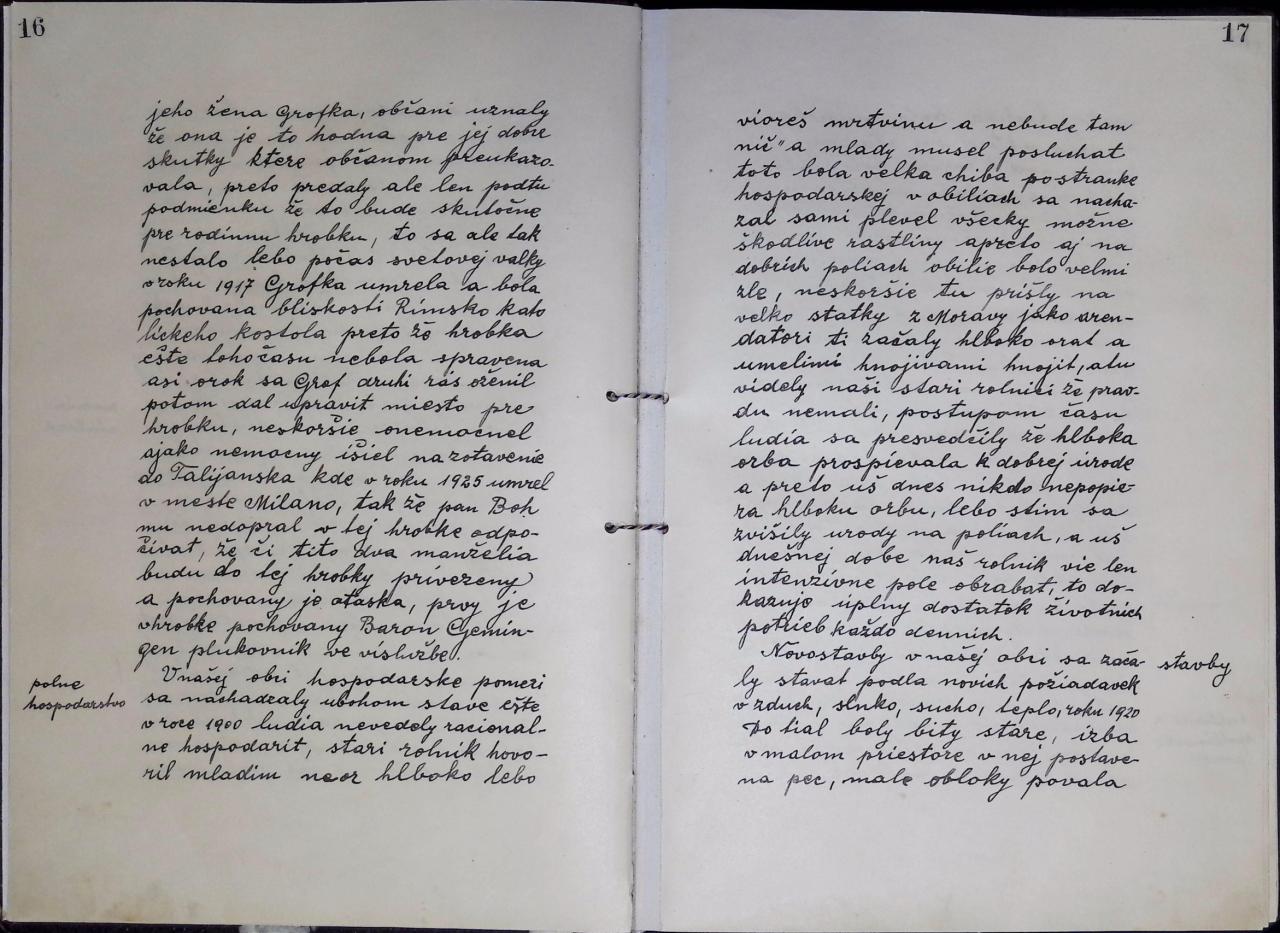 16
jeho žena Grofka, občani uznaly
že ona je to hodna pre jej dobre
skutky ktere občanom preukazo-
vala, preto predaly ale len podtu
podmienku že to bude skutočne
pre rodinnu hrobku, to sa ale tak
nestalo lebo počas svetovej valky
vroku 1917 Grofka umrela a bola
pochovana bliskosti Rimsko kato
lickeho kostola preto že hrobka
ešte tohočasu nebola spravena
asi orok sa Grof druhi ras oženil
potom dal upravit miesto pre
hrobku, neskoršie onemocnel
ajako nemocny išiel na zotavenie
do Talijanska kde v roku 1925 umrel
v meste Milano, tak že pan Boh
mu nedopral v tej hrobke odpo-
čivat, že či tito dva manželia
budu do tej hrobky privezeny
a pochovany je otaska, prvy je
vhrobke pochovany Baron Gemin-
gen plukovnik ve vislužbe.
polne
hospodarstvo
Vnašej obci hospodarske pomeri
sa nachadzaly ubohom stave ešte
v roce 1900 ludia nevedely racional-
ne hospodarit, stari rolnik hovo-
ril mladim neor hlboko lebo
17
vioreš mrtvinu a nebude tam
nič" a mlady musel posluchat
toto bola velka chiba postranke
hospodarskej v obiliach sa nacha-
zal sami plevel všecky možne
škodlive rastliny apreto aj na
dobrich poliach obilie bolo velmi
zle, neskoršie tu prišly na
velko statky z Moravy jako aren-
datori ti začaly hlboko orat a
umelimi hnojivami hnojit, atu
videly naši stari rolnici že prav-
du nemali, postupom času
ludia sa presvedčily že hlboka
orba prospievala k dobrej urode
a preto uš dnes nikdo nepopie-
ra hlboku orbu, lebo stim sa
zvišily urody na poliach, a uš
dnešnej dobe naš rolnik vie len
intenzivne pole obrabat, to do-
kazuje uplny dostatok životnich
potrieb každo dennich.
Novostavby v našej obci sa zača-
stavby
ly stavat podla novich požiadavek
vzduch, slnko, sucho, teplo, roku 1920
Do tial boly bity stare, izba
v malom priestore v nej postave-
na pec, male obloky povala